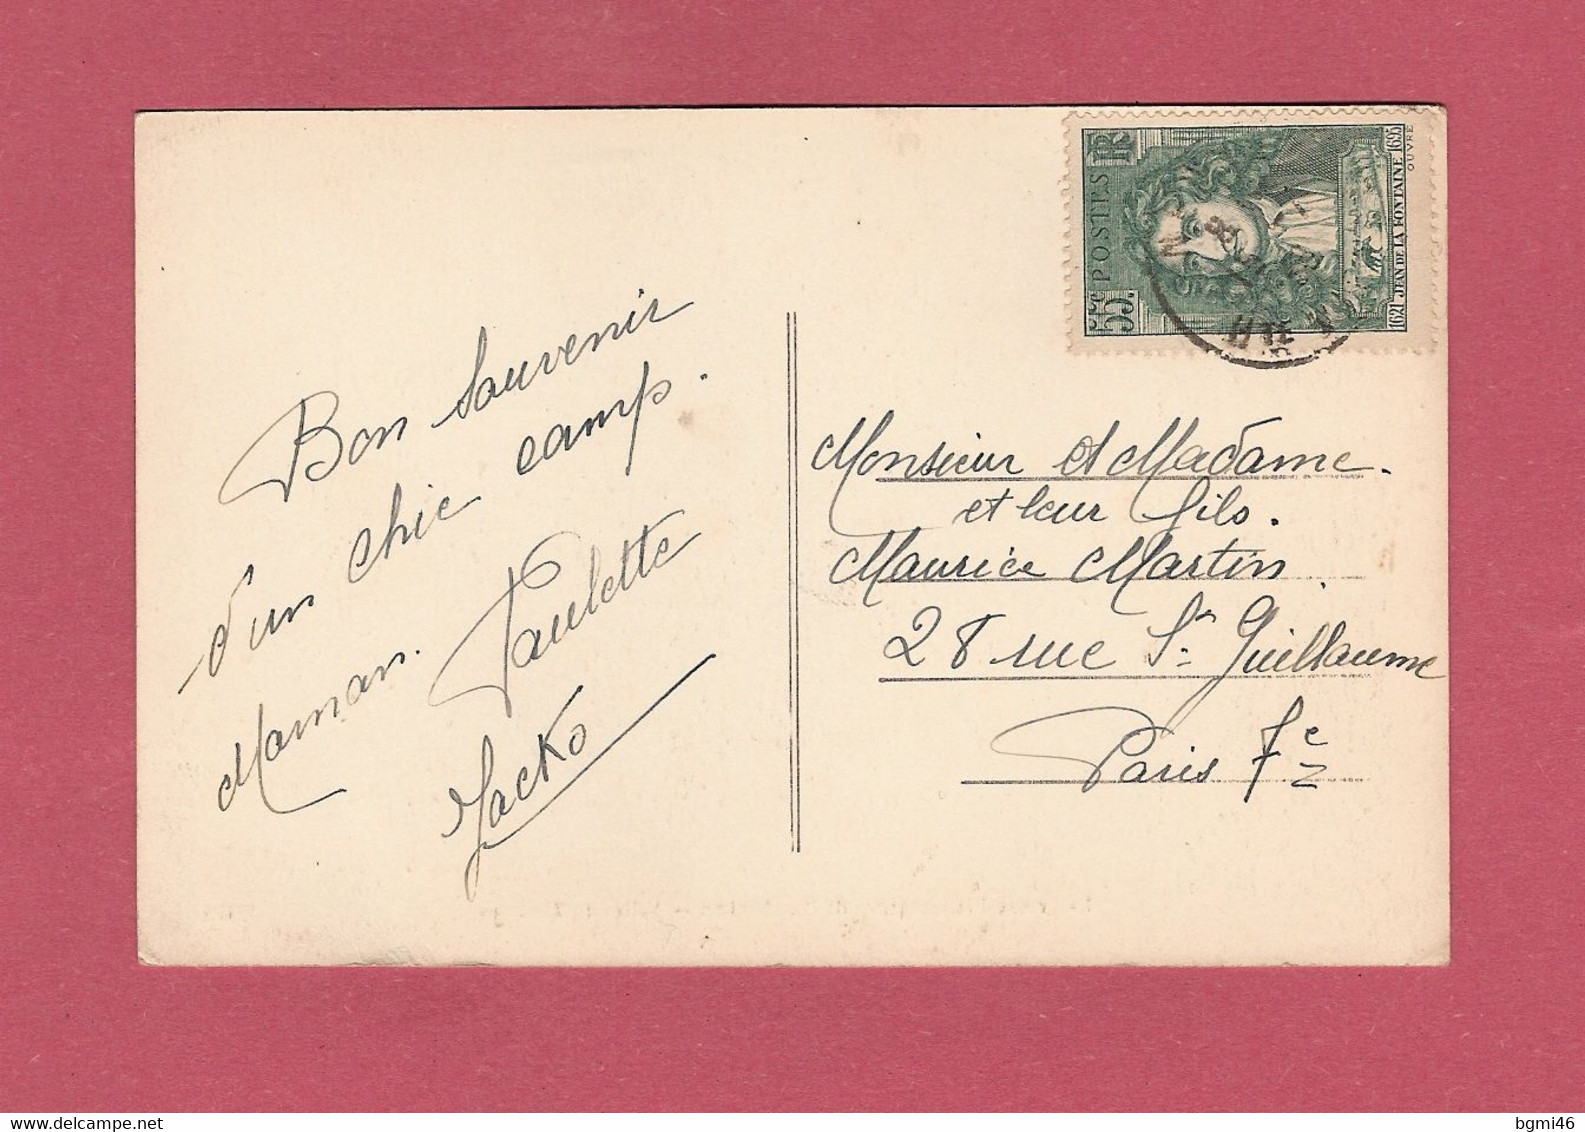 Bon Souvenir
d'un chic camp.
Maman. Paulette
Jacko
55c POSTES RF
1621 JEAN DE LA FONTAINE 1695
OUVRÉ
Monsieur et Madame.
et leur fils.
Maurice Martin.
28 rue St Guillaume
Paris 7e
bgmi46
www.delcampe.net